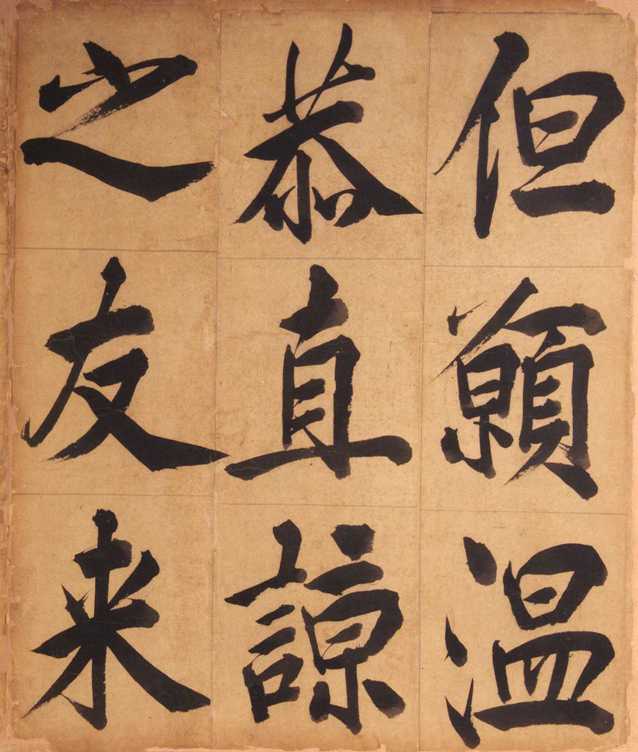 但願温
恭直諒
之友来